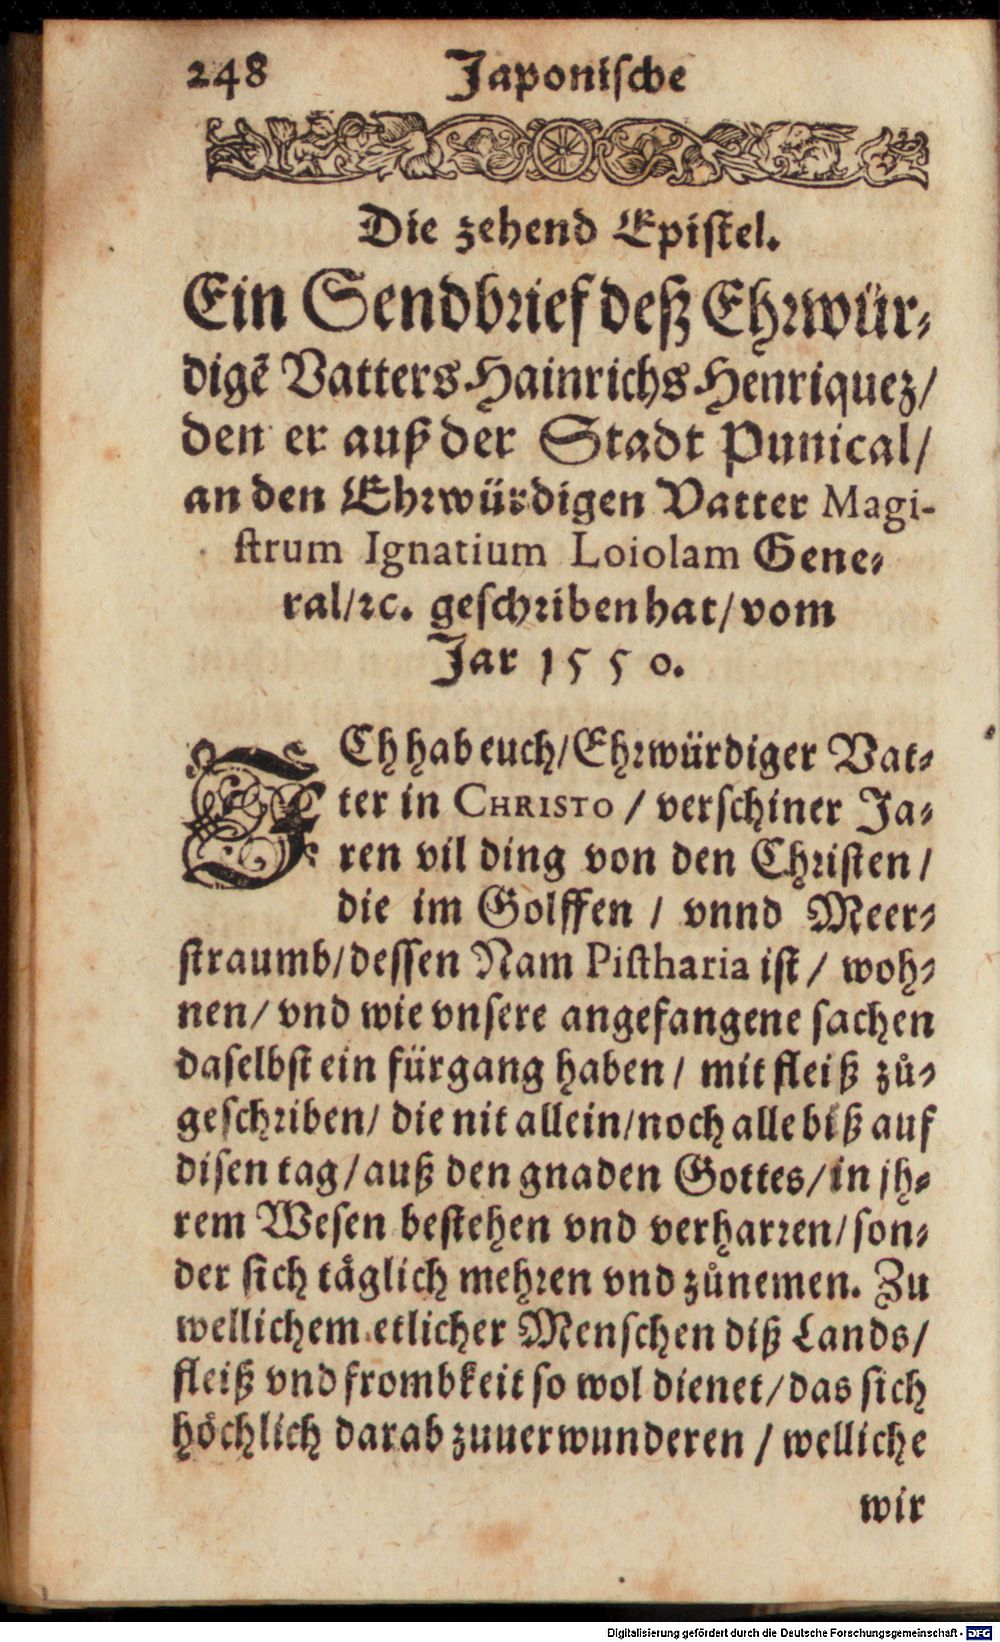 248 Japonische
Die zehend Epistel.
Ein Sendbrief deß Ehrwür-
digẽ Vatters Hainrichs Henriquez/
den er auß der Stadt Punical/
an den Ehrwürdigen Vatter Magi-
strum Ignatium Loiolam Gene-
ral/ꝛc. geschriben hat/ vom
Jar 1550.
ICh hab euch/ Ehrwürdiger Vat-
ter in CHRISTO / verschiner Ja-
ren vil ding von den Christen /
die im Golffen / vnnd Meer-
straumb/ dessen Nam Pistharia ist / woh-
nen/ vnd wie vnsere angefangene sachen
daselbst ein fürgang haben / mit fleiß zů-
geschriben/ die nit allein/ noch alle biß auf
disen tag/ auß den gnaden Gottes/ in jh-
rem Wesen bestehen vnd verharren/ son-
der sich täglich mehren vnd zůnemen. Zu
wellichem etlicher Menschen diß Lands/
fleiß vnd frombkeit so wol dienet/ das sich
höchlich darab zuuerwunderen / welliche
wir
Digitalisierung gefördert durch die Deutsche Forschungsgemeinschaft - DFG